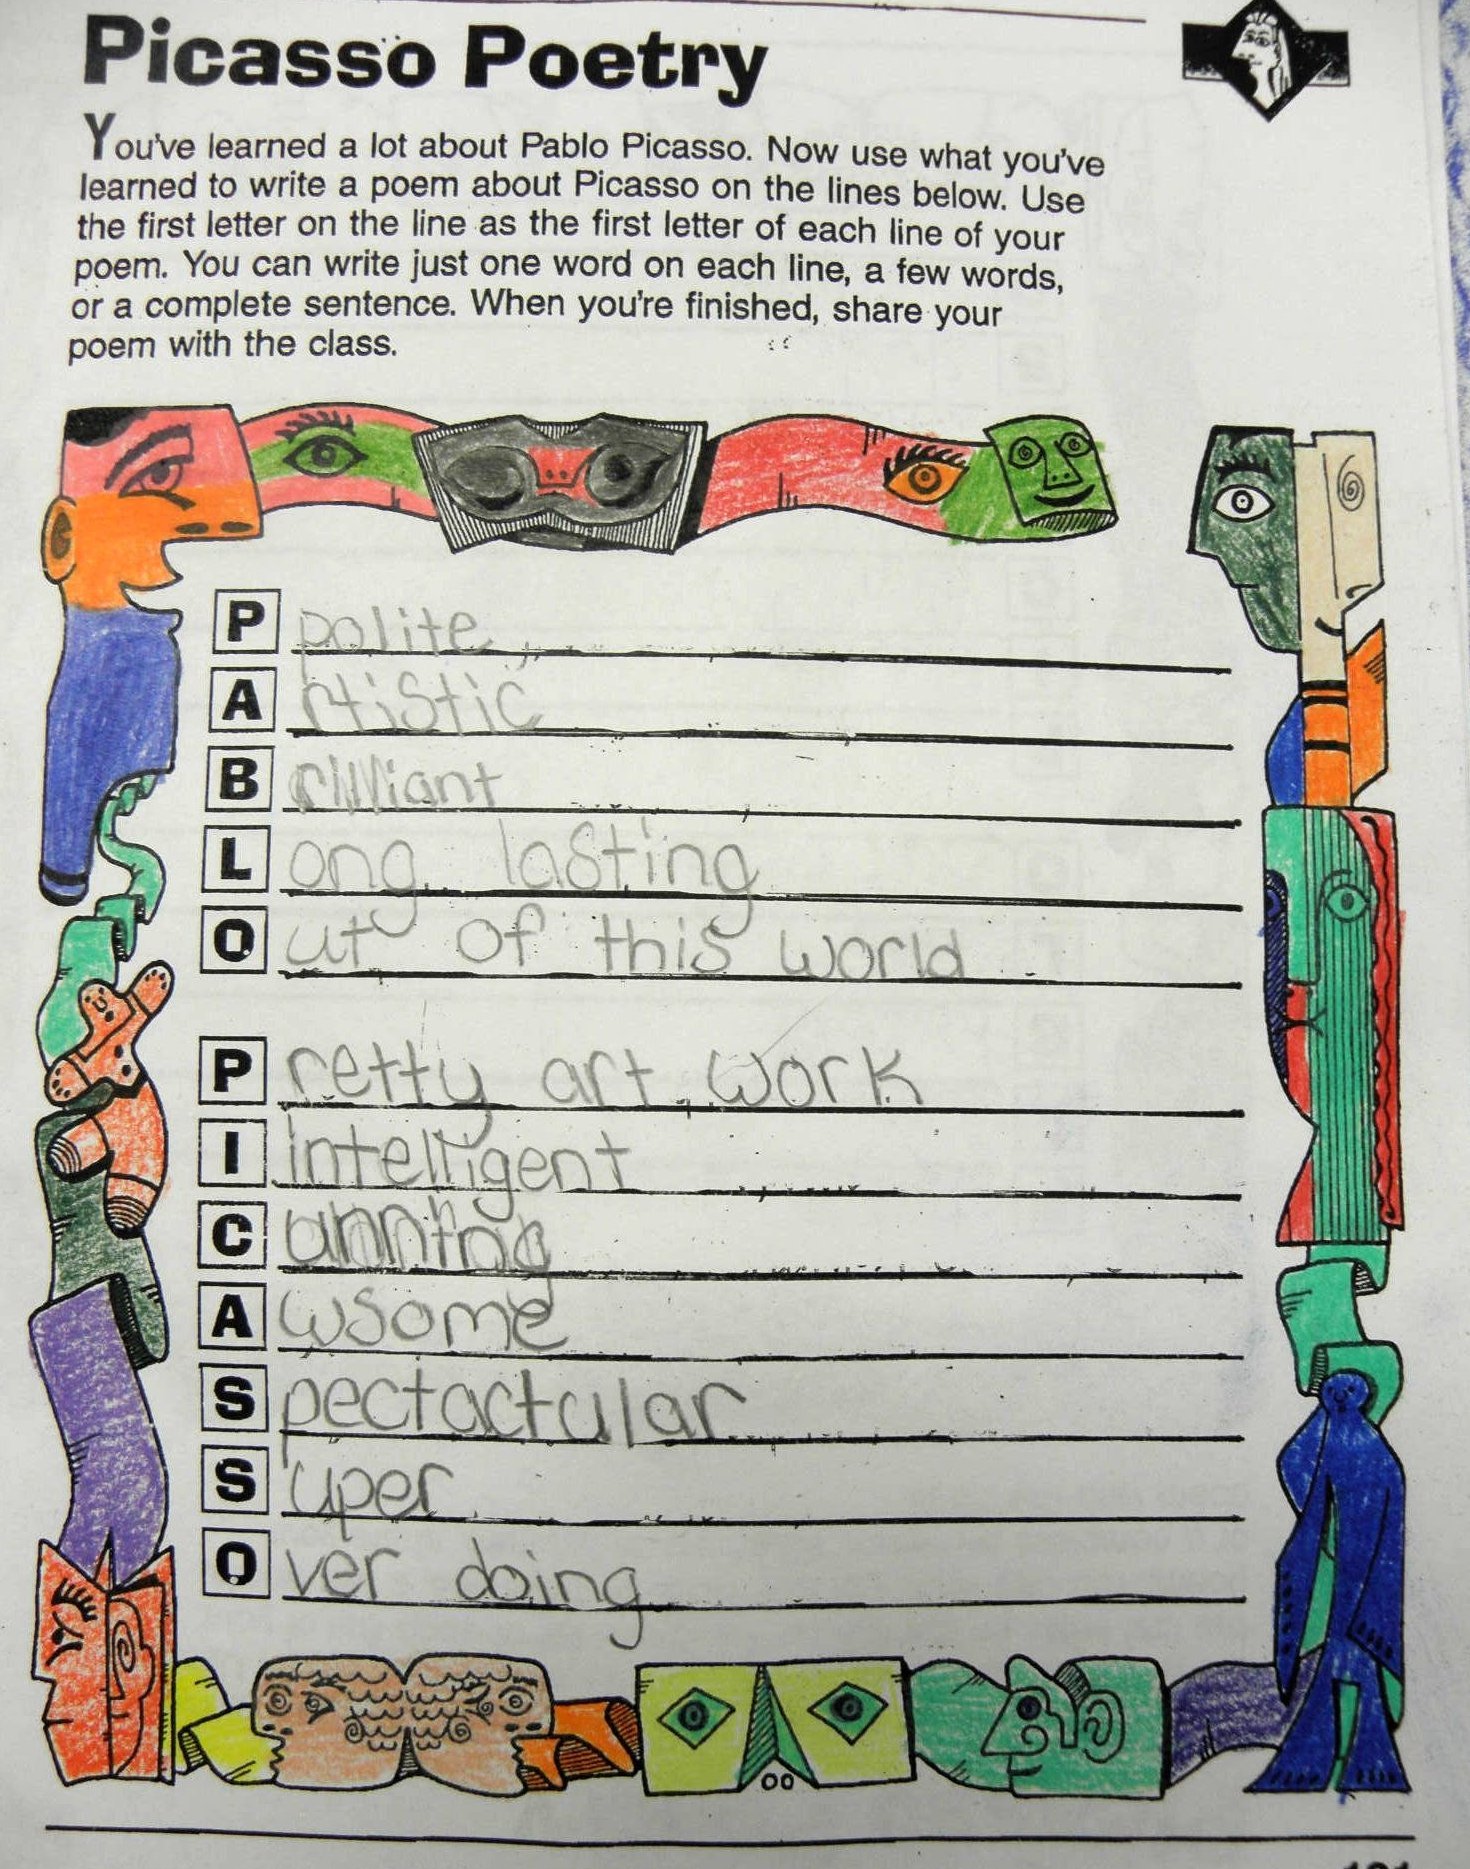 Picasso Poetry
You've learned a lot about Pablo Picasso. Now use what you've
learned to write a poem about Picasso on the lines below. Use
the first letter on the line as the first letter of each line of your
poem. You can write just one word on each line, a few words,
or a complete sentence. When you're finished, share your
poem with the class.
P polite,
A rtistic
B rilliant
L ong lasting
O ut of this world
P retty art work
I intelligent
C unning
A wsome
S pectactular
S uper
O ver doing